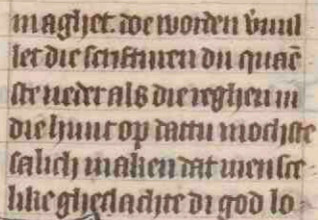 maghet. doe worden v̄vul
let die scrifturen du quaē
ste neder als die reghen in
die hunt op dattu mochste
salich maken dat mensce
like gheslachte di god lo